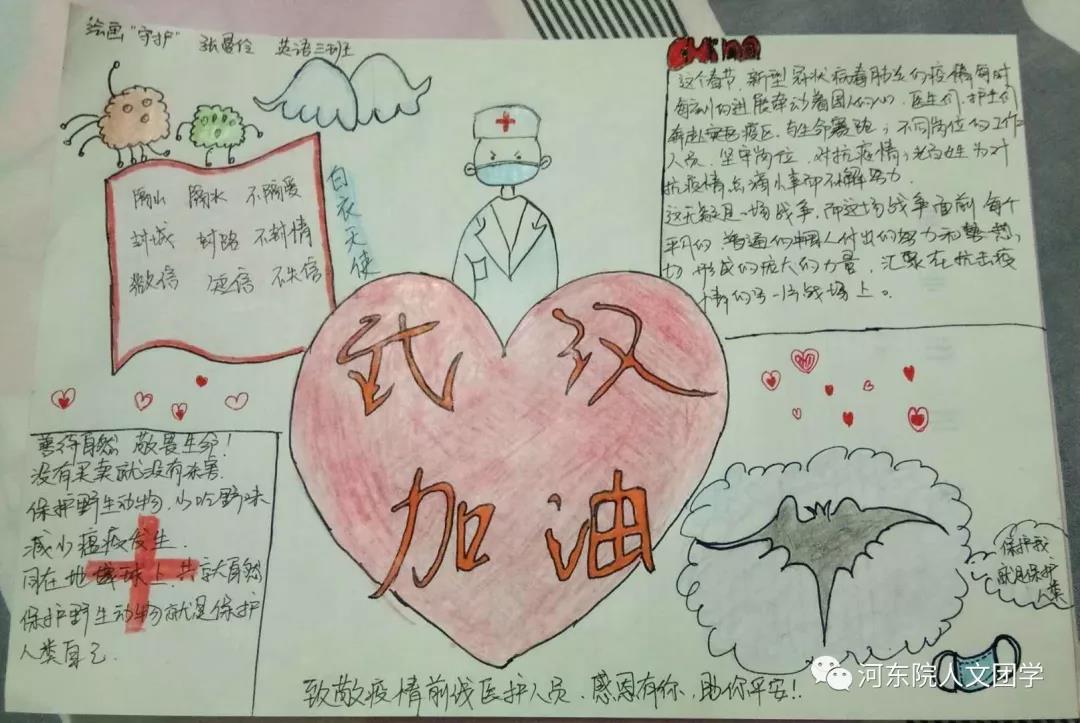 绘画"守护" 张曼伶 英语三班
China
这个春节,新型冠状病毒肺炎的疫情每时
每刻的进展牵动着国人的心,医生们、护士们
奔赴灾区疫区,与生命赛跑;不同岗位的工作
人员,坚牢岗位,对抗疫情;老百姓为对
抗疫情点滴小事而不懈努力.
这无疑是一场战争,而这场战争面前,每个
平凡的 普通的 人付出的努力和
形成的庞大的力量,汇聚在抗击疫
情的 战场上。
隔山 隔水 不隔爱
封城 封路 不封情
微信 短信 不失信
白衣天使
武汉
加油
善待自然 敬畏生命!
没有买卖就没有杀害.
保护野生动物,少吃野味
减少瘟疫发生.
同在地球上,共享大自然
保护野生动物就是保护
人类自己.
保护我
就是保护
人类
致敬疫情前线医护人员,感恩有你,助你平安!
河东院人文团学